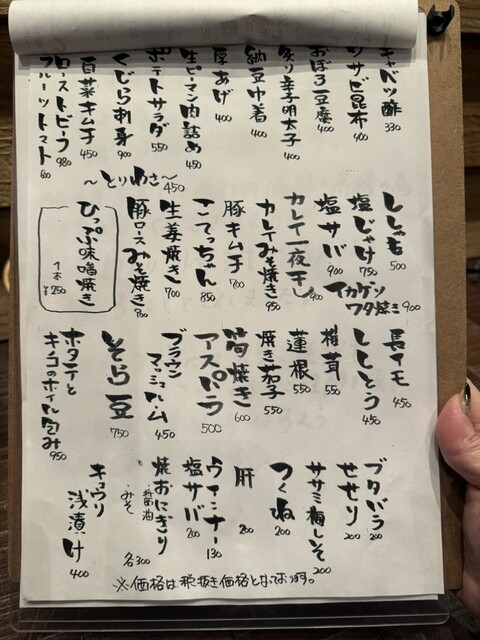 キャベツ酢 330
ワサビ昆布 400
おぼろ豆腐 400
炙り辛子明太子 400
納豆巾着 400
厚あげ 400
生ピーマン肉詰め 450
ポテトサラダ 550
くじら刺身 900
白菜キムチ 450
ローストビーフ 980
フルーツトマト 600
〜とりわさ〜 450
ししゃも 500
塩じゃけ 750
塩サバ 900
イカゲソワタ焼き 900
カレイ一夜干し 900
カレイみそ焼き 950
豚キムチ 700
こてっちゃん 850
生姜焼き 700
豚ロースみそ焼き 900
ひっぷ味噌焼き
1本 ¥250
長イモ 450
ししとう 450
椎茸 550
蓮根 550
焼き茄子 550
筍焼き 600
アスパラ 500
ブラウンマッシュルーム 450
そら豆 750
ホタテとキノコのホイル包み 950
ブタバラ 200
せせり 200
ササミ梅しそ 200
つくね 200
肝 200
ウィンナー 130
塩サバ 200
焼おにぎり
醤油
みそ
各300
キュウリ浅漬け 400
※価格は税抜き価格となっております。